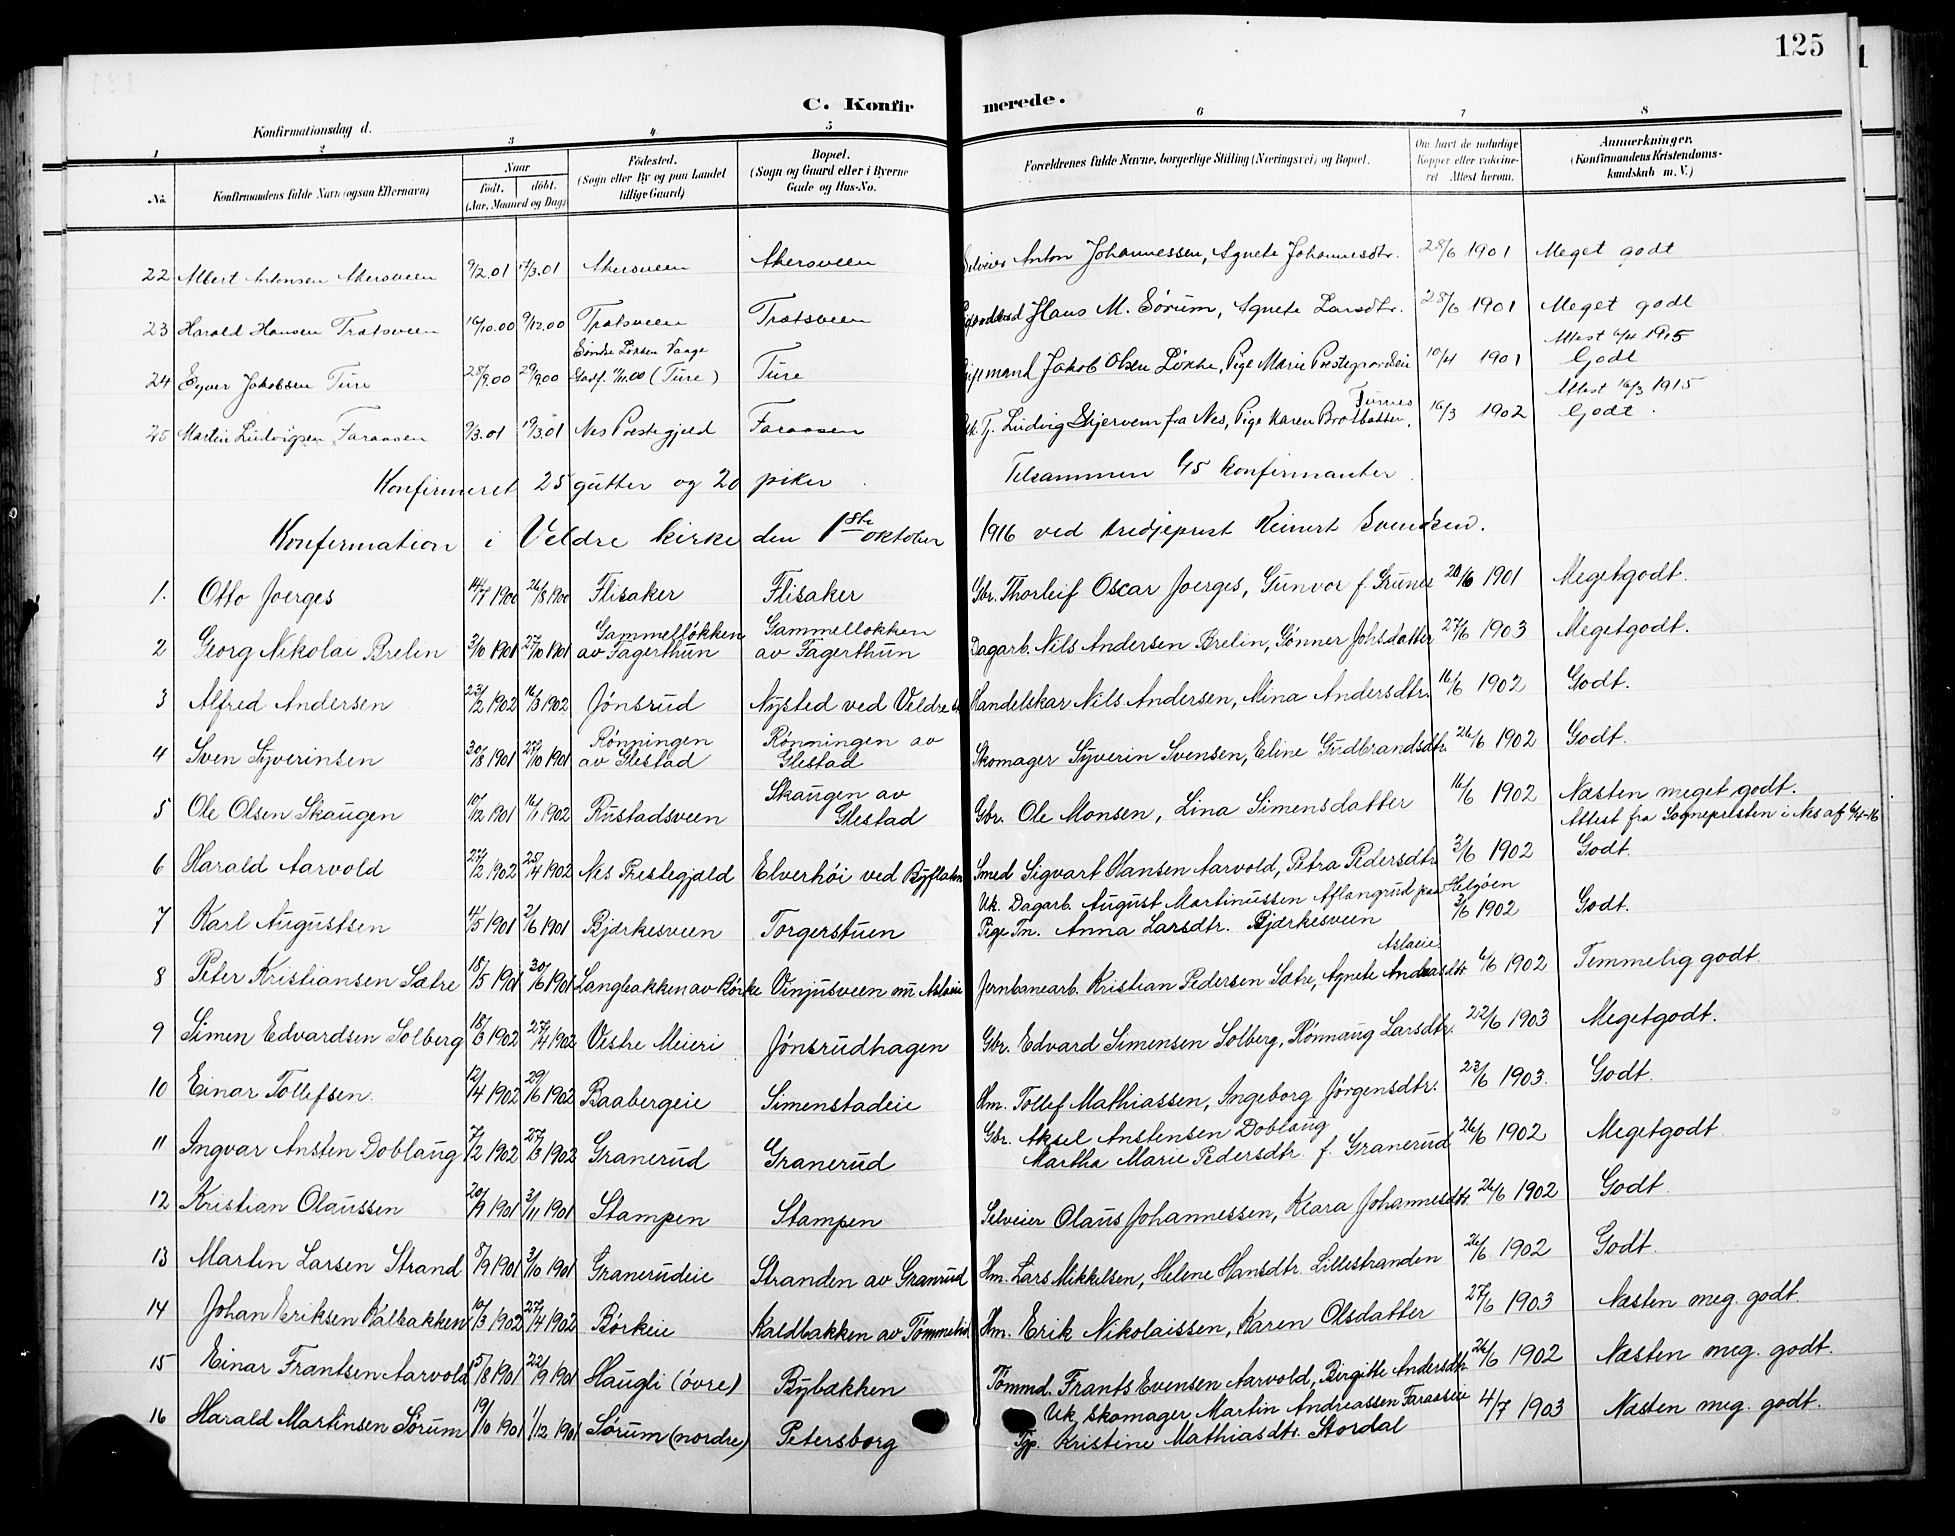 125
C. Konfirmerede.
Konfirmationsdag d.
1 2 3 4 5 6 7 8
No. Konfirmandens fulde Navn (ogsaa Efternavn) Naar født. døbt. (Aar, Maaned og Dag) Fødested. (Sogn eller By og paa Landet tillige Gaard) Bopæl. (Sogn og Gaard eller i Byerne Gade og Hus-No. Forældrenes fulde Navne, borgerlige Stilling (Næringsvei) og Bopæl. Om havt de naturlige Kopper eller vakcineret. Attest herom. Anmærkninger. (Konfirmandens Kristendomskundskab m. V.)
22 Albert Antonsen Akersveen 9/2.01 17/3.01 Akersveen Akersveen Selveier Anton Johannessen, Agnete Johannesdtr. 28/6 1901 Meget godt
23 Harald Hansen Trætsveen 16/10.00 9/12.00 Trætsveen Trætsveen Hans M. Sørum, Agnete Larsdtr. 28/6 1901 Meget godt
Søndre Løken Vaage Attest 6/4 1915
24 Eyver Jakobsen Ture 28/9.00 29/9.00 Stadf. 11/11.00 (Ture) Ture Jakob Olsen Løkke, Pige Marie Prestegaardseie 10/4 1901 Godt
Furnes Attest 16/3 1915
25 Martin Ludvigsen Faraasen 9/3.01 19/3.01 Nes Prestegjeld Faraasen Uk. Tj. Ludvig Skjerven fra Nes, Pige Karen Brotbakken, 16/3 1902 Godt.
Konfirmeret 25 gutter og 20 piker. Tilsammen 45 konfirmanter.
Konfirmation i Veldre kirke den 1ste oktober 1916 ved tredjeprest Reinert Svendsen.
1. Otto Joerges 14/7 1900 26/8 1900 Flisaker Flisaker Gbr. Thorleif Oscar Joerges, Gunvor f. Grunde 20/6 1901 Megetgodt.
2 Georg Nikolai Brelin 3/10 1901 27/10 1901 Gammelløkken av Fagerthun Gammelløkken av Fagerthun Dagarb. Nils Andersen Brelin, Gønner Johsdatter 27/6 1903 Megetgodt.
3 Alfred Andersen 23/2 1902 16/3 1902 Jønsrud Nysted ved Veldre st. Handelskar Nils Andersen, Mina Andersdtr. 16/6 1902 Godt.
4 Sven Syverinsen 30/8 1901 27/10 1901 Rønningen av Glestad Rønningen av Glestad Skomager Syverin Svensen, Eline Gudbrandsdtr. 26/6 1902 Godt.
5 Ole Olsen Skaugen 10/12 1901 16/1 1902 Rustadsveen Skaugen av Glestad Gbr. Ole Monsen, Lina Simensdatter 16/6 1902 Næsten meget godt.
Attest fra Sognepresten i Nes af 4/4-16
6 Harald Aarvold 27/2 1902 25/4 1902 Nes Prestegjæld Elverhøi ved Byflaten Smed Sigvart Hansen Aarvold, Petra Pedersdtr. 3/6 1902 Godt.
Uk. Dagarb. August Martinussen Aflangrud paa Helgøen
7 Karl Augustsen 14/5 1901 2/6 1901 Bjørkesveen Torgerstuen Pige Tn. Anna Larsdtr. Bjørkesveen 3/6 1902 Godt.
Aslaeie
8 Peter Kristiansen Sætre 18/5 1901 30/6 1901 Langbakken av Børke Vinjusveen nu Aslaeie Jernbanearb. Kristian Pedersen Sætre, Agnete Andreasdtr. 6/6 1902 Temmelig godt.
9 Simen Edvardsen Solberg 18/3 1902 27/4 1902 Vestre Meieri Jønsrudhagen Gbr. Edvard Simensen Solberg, Rønnaug Larsdtr. 22/6 1903 Megetgodt.
10 Einar Tollefsen. 12/4 1902 29/6 1902 Baabergeie Simenstadeie Hm. Tollef Mathiassen, Ingeborg Jørgensdtr. 23/6 1903. Godt.
11 Ingvar Ansten Doblaug 7/2 1902 27/3 1902 Granerud Granerud Gbr. Aksel Anstensen Doblaug 26/6 1902 Megetgodt
Martha Marie Pedersdtr. f. Granerud
12 Kristian Olaussen 20/9 1901 3/11 1901 Stampen Stampen Selveier Olaus Johannessen, Klara Johannesdtr. 26/6 1902 Godt.
13 Martin Larsen Strand 8/9 1901 3/10 1901 Granerudeie Stranden av Granrud Hm. Lars Mikkelsen, Helene Hansdtr. Lillestranden 26/6 1902 Godt.
14 Johan Eriksen Kalbakken 10/3 1902 27/4 1902 Børkeie Kaldbakken av Tømmelid Hm. Erik Nikolaissen, Karen Olsdatter 27/6 1903 Næsten meg. godt.
15 Einar Frantsen Aarvold 15/8 1901 22/9 1901 Haugli (øvre) Bybækken Tømmd. Frants Evensen Aarvold, Birgitte Andersdtr. 26/6 1902 Næsten meg. godt.
16 Harald Martinsen Sørum 19/10 1901 1/12 1901 Sørum (nordre) Petersborg Uk. Skomager Martin Andreassen Faraaseie 4/7 1903 Næsten meg. godt.
Tjp. Kristine Mathiasdtr. Stordal